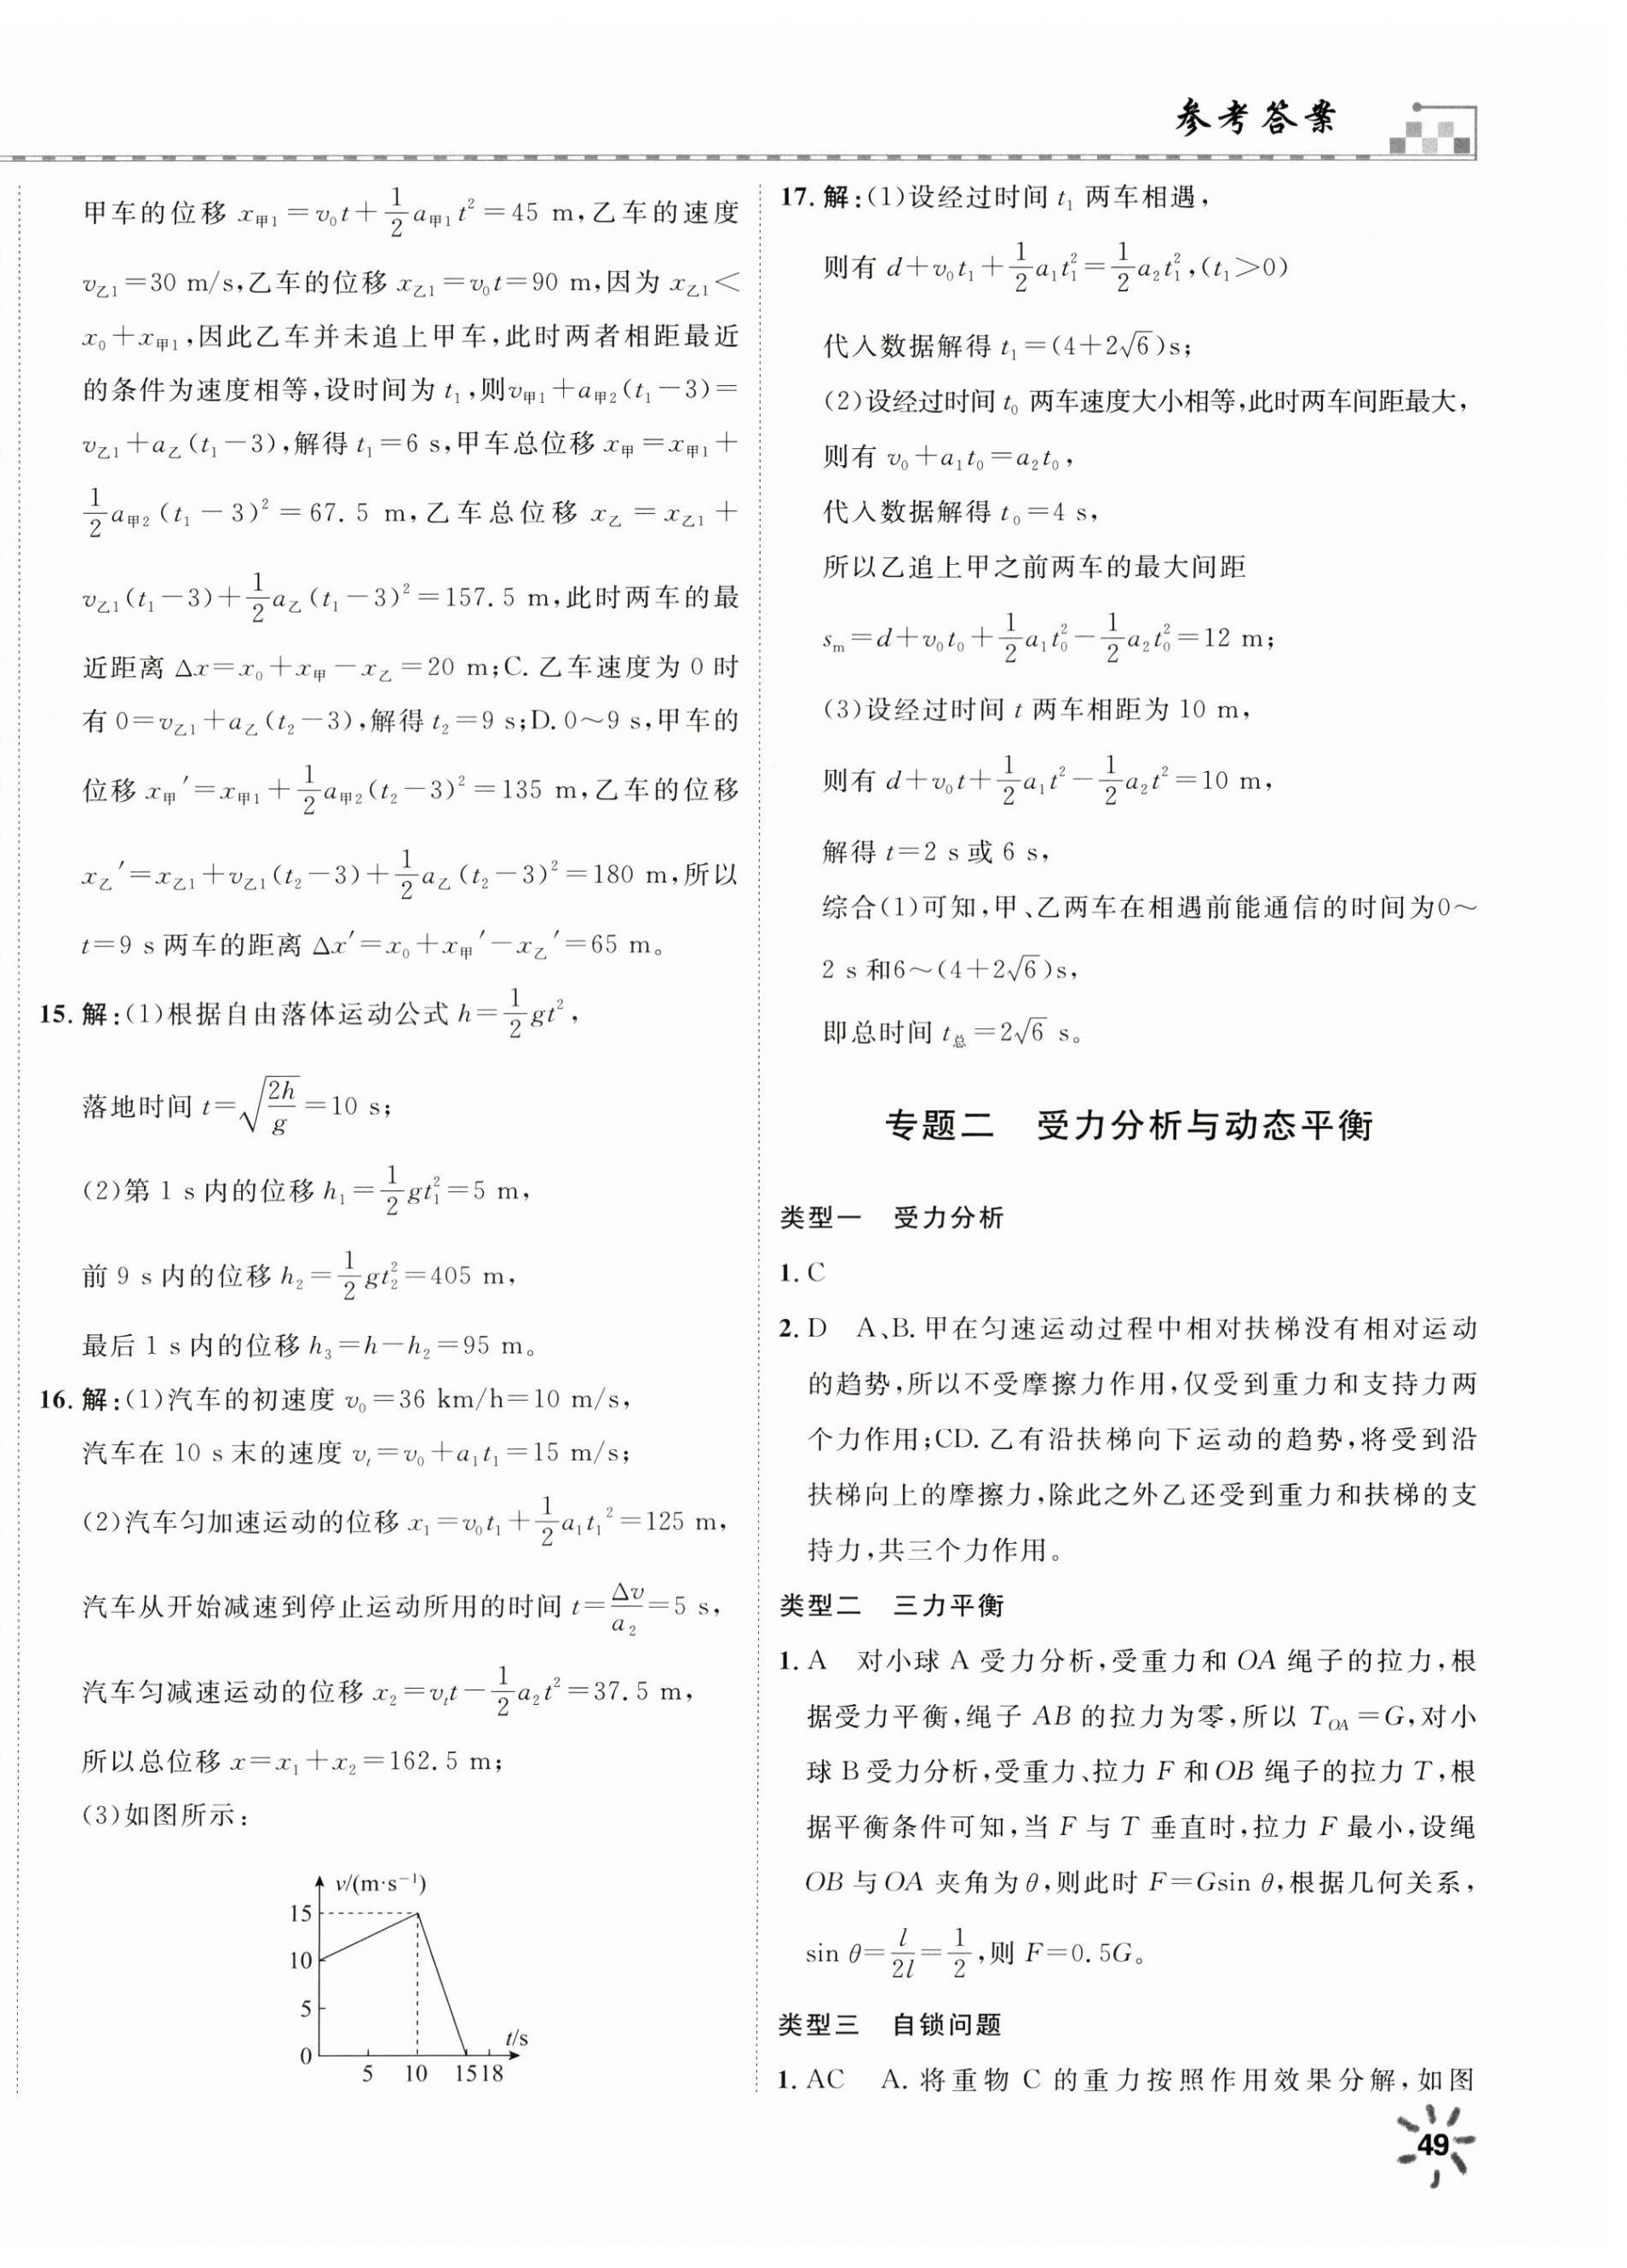 参考答案
甲车的位移 x甲1＝v₀t＋\frac{1}{2}a甲1t²＝45 m,乙车的速度
v乙1＝30 m/s,乙车的位移 x乙1＝v₀t＝90 m,因为 x乙1＜
x₀＋x甲1,因此乙车并未追上甲车,此时两者相距最近
的条件为速度相等,设时间为 t₁,则v甲1＋a甲2(t₁－3)＝
v乙1＋a乙(t₁－3),解得 t₁＝6 s,甲车总位移 x甲＝x甲1＋
\frac{1}{2}a甲2(t₁－3)²＝67.5 m,乙车总位移 x乙＝x乙1＋
v乙1(t₁－3)＋\frac{1}{2}a乙(t₁－3)²＝157.5 m,此时两车的最
近距离 Δx＝x₀＋x甲－x乙＝20 m;C.乙车速度为 0 时
有 0＝v乙1＋a乙(t₂－3),解得 t₂＝9 s;D.0～9 s,甲车的
位移 x甲′＝x甲1＋\frac{1}{2}a甲2(t₂－3)²＝135 m,乙车的位移
x乙′＝x乙1＋v乙1(t₂－3)＋\frac{1}{2}a乙(t₂－3)²＝180 m,所以
t＝9 s两车的距离 Δx′＝x₀＋x甲′－x乙′＝65 m。
15.解:(1)根据自由落体运动公式 h＝\frac{1}{2}gt²,
落地时间 t＝\sqrt{\frac{2h}{g}}＝10 s;
(2)第 1 s内的位移 h₁＝\frac{1}{2}gt₁²＝5 m,
前 9 s内的位移 h₂＝\frac{1}{2}gt₂²＝405 m,
最后 1 s内的位移 h₃＝h－h₂＝95 m。
16.解:(1)汽车的初速度 v₀＝36 km/h＝10 m/s,
汽车在 10 s末的速度 vₜ＝v₀＋a₁t₁＝15 m/s;
(2)汽车匀加速运动的位移 x₁＝v₀t₁＋\frac{1}{2}a₁t₁²＝125 m,
汽车从开始减速到停止运动所用的时间 t＝\frac{Δv}{a₂}＝5 s,
汽车匀减速运动的位移 x₂＝vₜt－\frac{1}{2}a₂t²＝37.5 m,
所以总位移 x＝x₁＋x₂＝162.5 m;
(3)如图所示:
v/(m·s⁻¹)
15
10
5
0
t/s
5 10 15 18
17.解:(1)设经过时间 t₁ 两车相遇,
则有 d＋v₀t₁＋\frac{1}{2}a₁t₁²＝\frac{1}{2}a₂t₁²,(t₁＞0)
代入数据解得 t₁＝(4＋2√6)s;
(2)设经过时间 t₀ 两车速度大小相等,此时两车间距最大,
则有 v₀＋a₁t₀＝a₂t₀,
代入数据解得 t₀＝4 s,
所以乙追上甲之前两车的最大间距
sₘ＝d＋v₀t₀＋\frac{1}{2}a₁t₀²－\frac{1}{2}a₂t₀²＝12 m;
(3)设经过时间 t 两车相距为 10 m,
则有 d＋v₀t＋\frac{1}{2}a₁t²－\frac{1}{2}a₂t²＝10 m,
解得 t＝2 s或 6 s,
综合(1)可知,甲、乙两车在相遇前能通信的时间为0～
2 s和6～(4＋2√6)s,
即总时间 t总＝2√6 s。
专题二 受力分析与动态平衡
类型一 受力分析
1.C
2.D A、B.甲在匀速运动过程中相对扶梯没有相对运动
的趋势,所以不受摩擦力作用,仅受到重力和支持力两
个力作用;CD.乙有沿扶梯向下运动的趋势,将受到沿
扶梯向上的摩擦力,除此之外乙还受到重力和扶梯的支
持力,共三个力作用。
类型二 三力平衡
1.A 对小球 A 受力分析,受重力和 OA 绳子的拉力,根
据受力平衡,绳子 AB 的拉力为零,所以 T_OA＝G,对小
球 B受力分析,受重力、拉力 F 和OB 绳子的拉力 T,根
据平衡条件可知,当 F 与 T 垂直时,拉力 F 最小,设绳
OB 与OA 夹角为 θ,则此时 F＝Gsin θ,根据几何关系,
sin θ＝\frac{l}{2l}＝\frac{1}{2},则 F＝0.5G。
类型三 自锁问题
1.AC A.将重物 C 的重力按照作用效果分解,如图
49